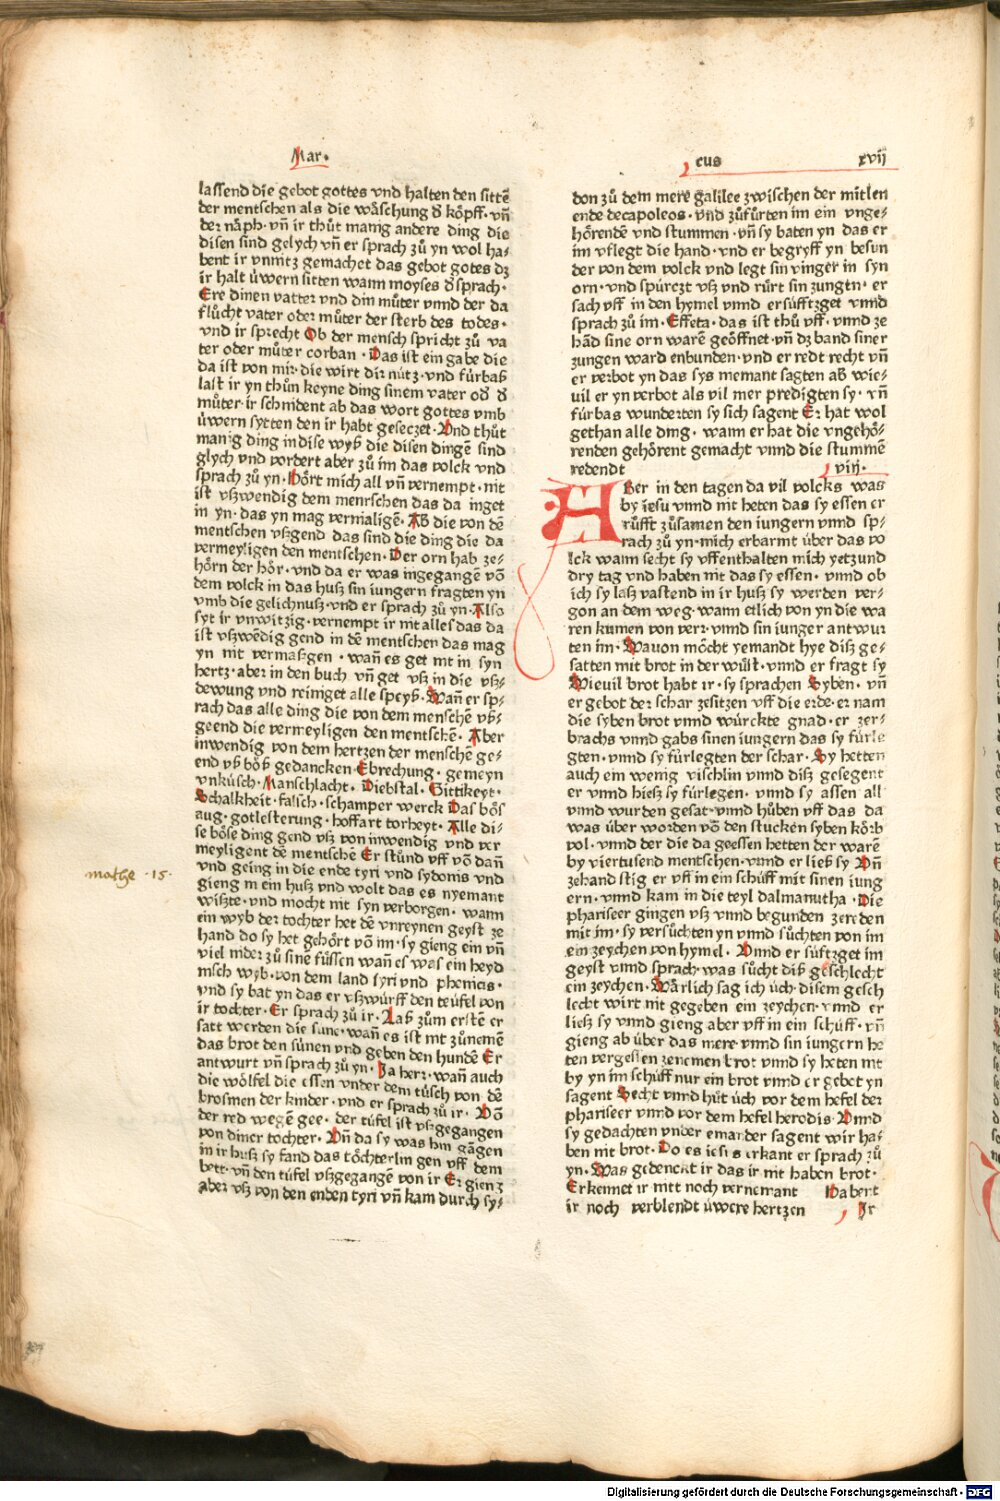 Mar·
cus xvij
lassend die gebot gottes vnd halten den sittē
der mentschen als die wåschung ď kŏpff· vñ
der nåph· vñ ir thůt manig andere ding die
disen sind gelych vñ er sprach zů yn wol ha-
bent ir vnnıtz gemachet das gebot gotes dz
ir halt ůwern sitten wann moyses ď sprach·
Ere dinen vatter vnd din můter vnnd der da
flůcht vater oder můter der sterb des todes·
vnd ir sprecht Ob der mensch spricht zů va
ter oder můter corban · Das ist ein gabe die
da ist von mir· die wirt dir nútz· vnd fúrbaß
last ir yn thůn keyne ding sinem vater oď ď
můter· ir schnident ab das wort gottes vmb
ůwern sytten den ir habt gesetzet· Vnd thůt
manig ding in dise wyß die disen dingē sind
glych vnd vordert aber zů im das volck vnd
sprach zů yn· Hŏrt mich all vñ vernempt· nit
ist vßwendig dem menrschen das da inget
in yn· das yn mag vermaligē· Aß die von dē
mentschen vßgend das sind die ding die da
vermeyligen den mentschen· Der orn hab ze-
hŏrn der hŏr· vnd da er was ingegangē vō
dem volck in das huß sin iungern fragten yn
vmb die gelichnuß· vnd er sprach zů yn· Also
syt ir vnwitzig· vernempt ir nit alles das da
ist vßwēdig gend in dē mentschen das mag
yn nit vermaßgen · wañ es get nit in syn
hertz· aber in den buch vñ get vß in die vß-
dewung vnd reiniget alle speyß· Wañ er sp-
rach das alle ding die von dem menschē vß-
geend die vermeyligen den mentschē· Aber
inwendig von dem hertzen der menschē ge-
end vß bŏß gedancken· Ebrechung· gemeyn
vnkúsch· Manschlacht· Diebstal· Gittikeyt·
Schalkheit· falsch· schamper werck Das bŏs
aug· gotlesterung· hoffart torheyt· Alle di-
se bŏse ding gend vß von inwendig vnd ver
meyligent dē mentschē Er stůnd vff vō dañ
vnd geing in die ende tyri vnd sydonis vnd
gieng in ein huß vnd wolt das es nyemant
wißte· vnd mocht nit syn verborgen· wann
ein wyb der tochter het dē vnreynen geyst ze
hand do sy het gehŏrt vō im· sy gieng ein vñ
viel nider zů sinē fússen wañ es was ein heyd
nisch wyb· von dem land syri vnd phenicis·
vnd sy bat yn das er vßwurff den teúfel von
ir tochter· Er sprach zů ir· Laß zům ersten er
satt werden die súne· wañ es ist nit zůnemē
das brot den súnen vnd geben den hundē Er
antwurt vñ sprach zů yn· Ja herr· wañ auch
die wŏlfel die essen vnder dem túsch von dē
brosmen der kinder· vnd er sprach zů ir· Vō
der red wegē gee· der túfel ist vßgegangen
von diner tochter· Vñ da sy was hin gāgen
in ir huß sy fand das tŏchterlin gen vff dem
bett· vñ den túfel vßgegangē von ir Er gieng
Aber vß von den enden tyri vñ kam durch sy-
mathe · 15 ·
don zů dem mere galilee zwischen der mitlen
ende decapoleos· vnd zůfůrten im ein vnge-
hŏrendē vnd stummen· vñ sy baten yn das er
im vflegt die hand· vnd er begryff yn besun
der von dem volck vnd legt sin vinger in syn
orn· vnd spúrczt vß vnd rúrt sin zungen· er
sach vff in den hymel vnnd ersúfftzget vnnd
sprach zů im· Effeta· das ist thů vff· vnnd ze
hād sine orn warē geŏffnet· vñ dz band siner
zungen ward enbunden· vnd er redt recht vñ
er verbot yn das sys niemant sagten aß wie-
uil er yn verbot als vil mer predigten sy· vñ
fúrbas wunderten sy sich sagent Er hat wol
gethan alle ding· wann er hat die vngehŏ-
renden gehŏrent gemacht vnnd die stummē
redendt viij·
ABer in den tagen da vil volcks was
by iesu vnnd nit heten das sy essen er
růfft zůsamen den iungern vnnd sp-
rach zů yn· mich erbarmt úber das vo
lck wann secht sy vffenthalten mich yetzund
dry tag vnd haben nit das sy essen· vnnd ob
ich sy laß vastend in ir huß sy werden ver-
gon an dem weg· wann etlich von yn die wa
ren kumen von verr· vnnd sin iunger antwur
ten im· Wauon mŏcht yemandt hye diß ge-
satten mit brot in der wůst· vnnd er fragt sy
Wieuil brot habt ir· sy sprachen Syben· vñ
er gebot der schar zesitzen vff die erde· er nam
die syben brot vnnd wúrckte gnad· er zer-
brachs vnnd gabs sinen iungern das sy fúrle
gten· vnnd sy fúrlegten der schar· Sy hetten
auch ein wenig vischlin vnnd diß gesegent
er vnnd hieß sy fúrlegen· vnnd sy assen all
vnnd wurden gesat· vnnd hůben vff das da
was úber worden vō den stucken syben kŏrb
vol· vnnd der die da geessen hetten der warē
by viertusend mentschen· vnnd er ließ sy Vñ
zehand stig er vff in ein schúff mit sinen iung
ern· vnnd kam in die teyl dalmanutha· Die
phariseer gingen vß vnnd begunden zereden
mit im· sy versůchten yn vnnd sůchten von im
ein zeychen von hymel· Vnnd er súftzget im
geyst vnnd sprach· was sůcht diß geschlecht
ein zeychen· Wårlich sag ich úch· disem gesch
lecht wirt nit gegeben ein zeychen· vnnd er
ließ sy vnnd gieng aber vff in ein schúff· vñ
gieng ab úber das mere· vnnd sin iungern he
ten vergessen zenemen brot vnnd sy heten nit
by yn im schúff nur ein brot vnnd er gebot yn
sagent Secht vnnd hůt úch vor dem hefel der
phariseer vnnd vor dem hefel herodis· Vnnd
sy gedachten vnder einander sagent wir ha-
ben nit brot· Do es iesus erkant er sprach zů
yn· Was gedenckt ir das ir nit haben brot·
Erkennet ir nitt noch vernemant Habent
ir noch verblendt úwere hertzen Ir
Digitalisierung gefördert durch die Deutsche Forschungsgemeinschaft - DFG